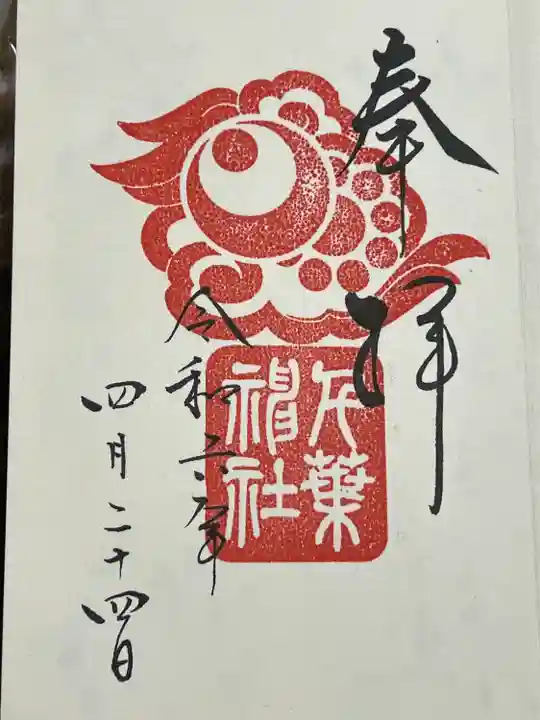 奉拝
千葉
神社
令和六年
四月二十四日